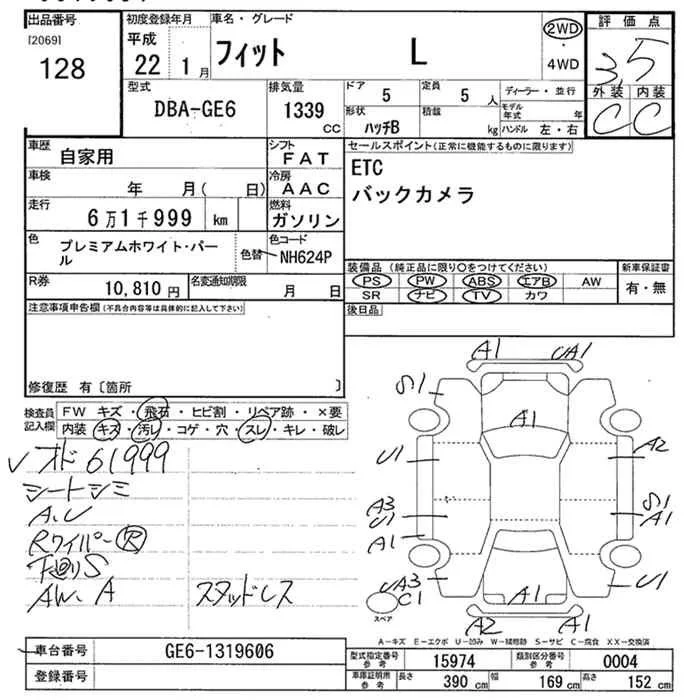 出品番号
[2069]
128
初度登録年月
平成
22年 1月
車名・グレード
フィット L
2WD
・
4WD
評価点
3.5
外装 内装
C C
型式
DBA-GE6
排気量
1339
CC
ドア
5
定員
5 人
形状
ハッチB
積載
kg
ディーラー・並行
モデル年式 年
ハンドル 左・右
車歴
自家用
シフト
FAT
車検
年 月( 日)
冷房
AAC
走行
6万1千999 km
燃料
ガソリン
色
プレミアムホワイト・パール
色替
色コード
NH624P
R券
10,810 円
名変通知期限
月 日
セールスポイント(正常に機能するものに限ります)
ETC
バックカメラ
装備品 (純正品に限り○をつけてください)
PS PW ABS エアB AW
SR ナビ TV カワ
新車保証書
有・無
後日品
注意事項申告欄(不具合内容等は具体的に記入して下さい)
修復歴 有〔箇所 〕
検査員記入欄
FW キズ・飛石・ヒビ割・リペア跡・×要
内装 キズ・汚レ・コゲ・穴・スレ・キレ・破レ
オド61999
シートシミ
A.U
Rワイパー R
下廻りS
AW.A スタッドレス
A1 UA1
S1
A1
U1 A2
A3 U1 S1 A1
A1
UA3 C1 U1
A1
A2 A1
スペア
A-キズ E-エクボ U-凹み W-補修跡 S-サビ C-腐食 XX-交換済
車台番号
GE6-1319606
登録番号
型式指定番号 参考
15974
類別区分番号 参考
0004
車庫証明用 参考
長さ 390 cm 幅 169 cm 高さ 152 cm